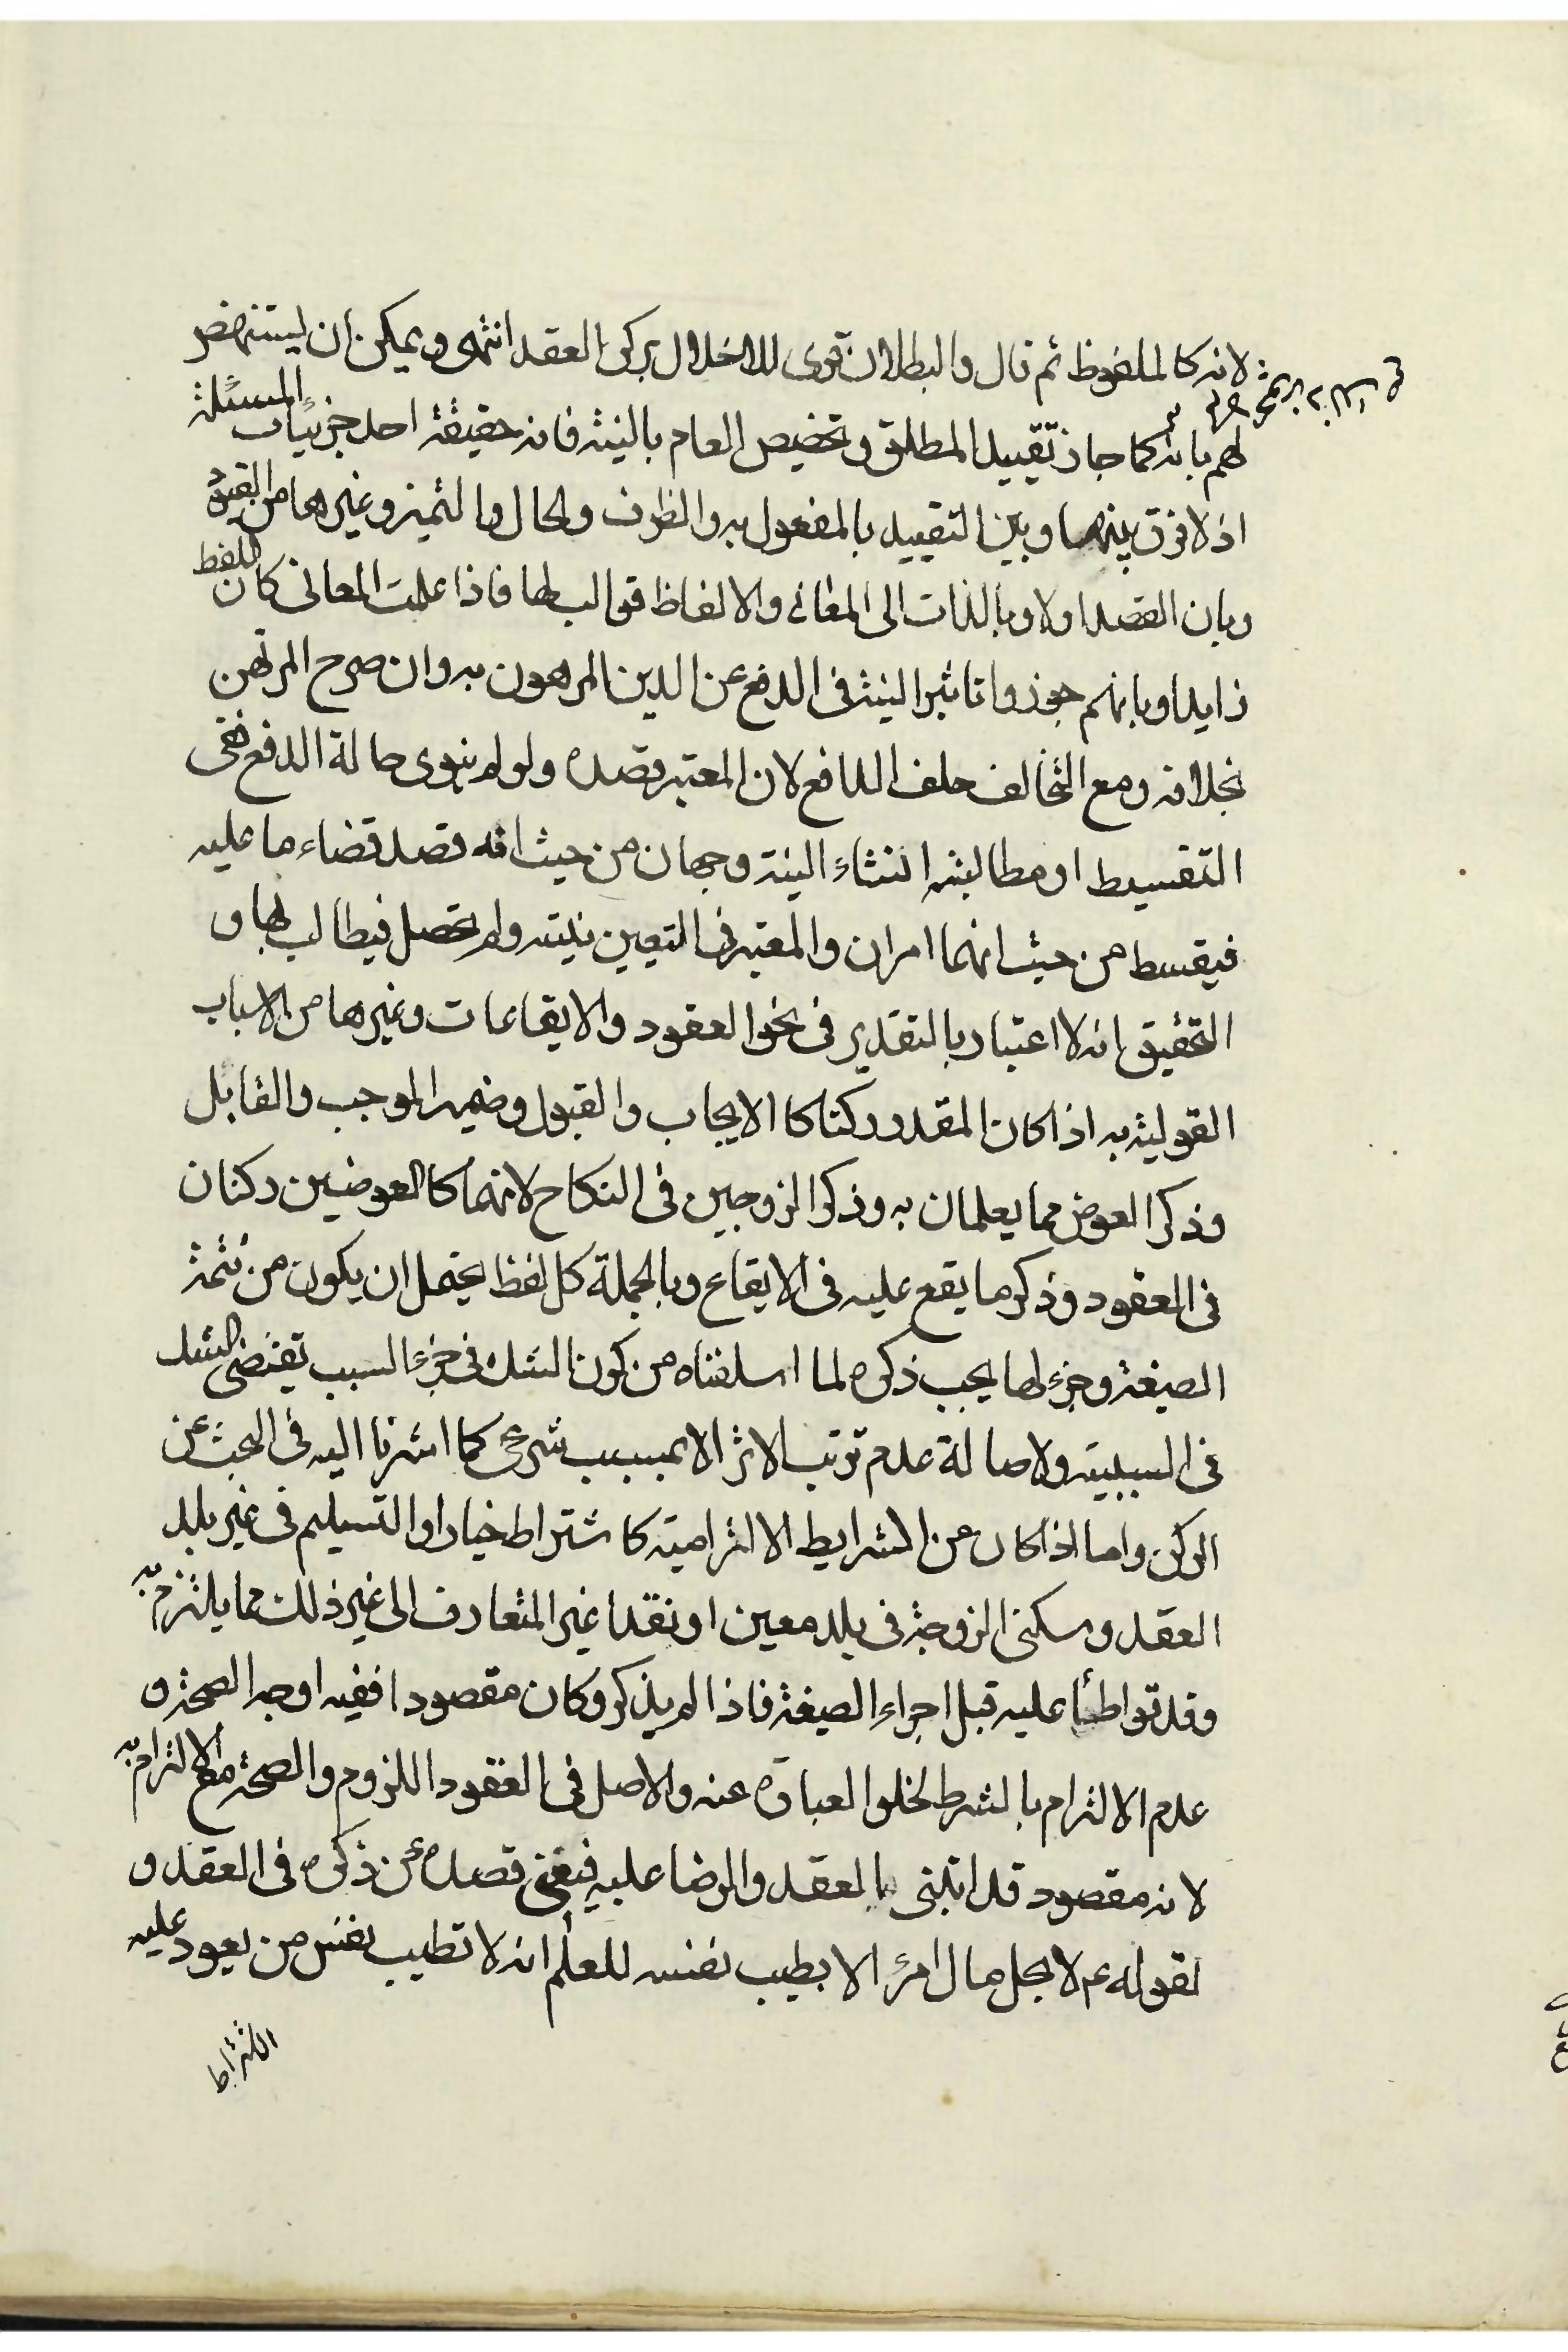 لانه كالملفوظ ثم قال والبطلان قوى للاخلال بركن العقد انتهى ويمكن أن يستنهض
لهم بانه كما جاز تقييد المطلق وتخصيص العام بالنية فانه حقيقة احد جزئيات المسئلة
اذ لا فرق بينهما وبين التقييد بالمفعول به والظرف والحال والتميز وغيرها من القيود
وبان القصد اولا وبالذات الى المعانى والالفاظ قوالب لها فاذا علمت المعانى كان اللفظ
زايدا وبانهم جوزوا تاثير النية فى الدفع عن الدين المرهون به وان صرح المرتهن
بخلافه ومع التخالف حلف الدافع لان المعتبر قصده ولو لم ينوى حالة الدفع ففى
التقسيط او مطالبته انشاء النية وجهان من حيث انه قصد قضاء ما عليه
فيقسط من حيث انهما امران والمعتبر فى التعيين نيته ولم تحصل فيطالب بها و
التحقيق انه لا اعتبار بالتقدير فى نحو العقود والايقاعات وغيرها من الاسباب
القولية به اذا كان المقدر ركنا كالايجاب والقبول وضمير الموجب والقابل
وذكر العوض مما يعلمان به وذكر الزوجين فى النكاح لانهما كالعوضين ركنان
فى العقود وذكر ما يقع عليه فى الايقاع وبالجملة كل لفظ يحتمل ان يكون من تتمة
الصيغة وجزء لها يجب ذكره لما اسلفناه من كون الشك فى جزء السبب تقتضى الشك
فى السببية ولاصالة عدم ترتب الاثر الا بسبب شرعى كما اشرنا اليه فى البحث عن
الركن واما اذا كان من الشرايط الالتزامية كاشتراط خيار او التسليم فى غير بلد
العقد وسكنى الزوجة فى بلد معين او نقدا غير المتعارف الى غير ذلك مما يلتزم به
وقد تواطئا عليه قبل اجراء الصيغة فاذا لم يذكر وكان مقصودا ففيه اوجه الصحة و
عدم الالتزام بالشرط لخلو العبارة عنه والاصل فى العقود اللزوم والصحة مع الالتزام به
لانه مقصود قد ابتنى بالعقد والرضا عليه فيغنى قصده عن ذكره فى العقد و
لقوله ع لا يحل مال امرئ الا بطيب نفسه للعلم انه لا تطيب نفس من يعود عليه